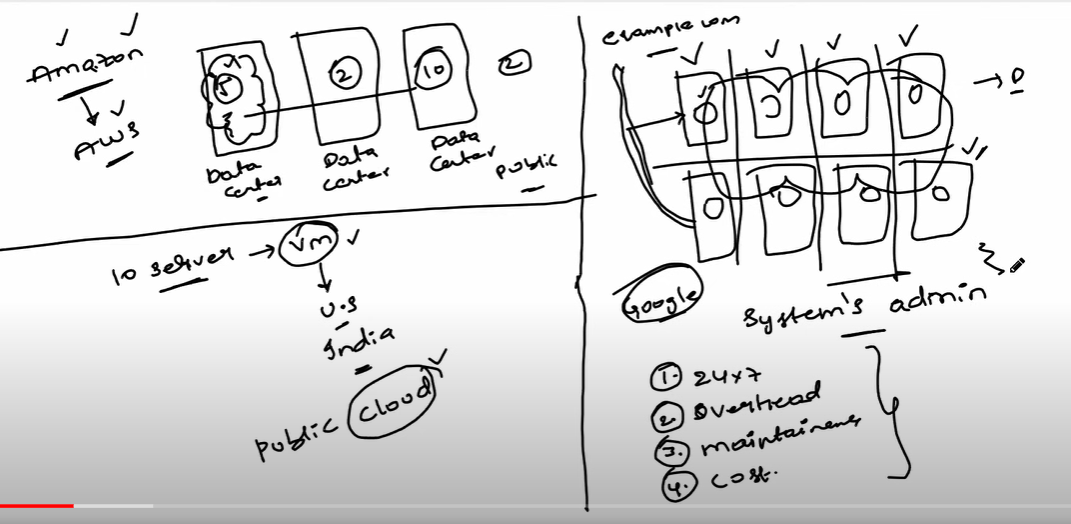 Amazon
AWS
5
2
10
2
Data
center
Data
center
Data
center
public
10 server → Vm
U.S
India
public cloud
example.com
Google
System's admin
1. 24x7
2. Overhead
3. maintainens
4. cost.